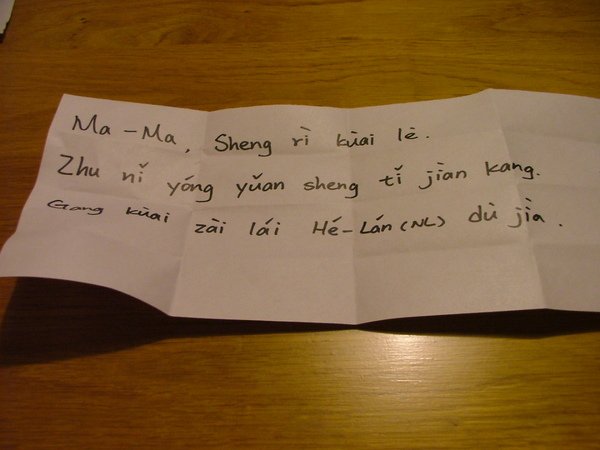 Ma-Ma, Sheng rì kùai lè.
Zhu nǐ yóng yuǎn sheng tǐ jìan kang.
Gang kùai zài lái Hé-Lán (NL) dù jìa.